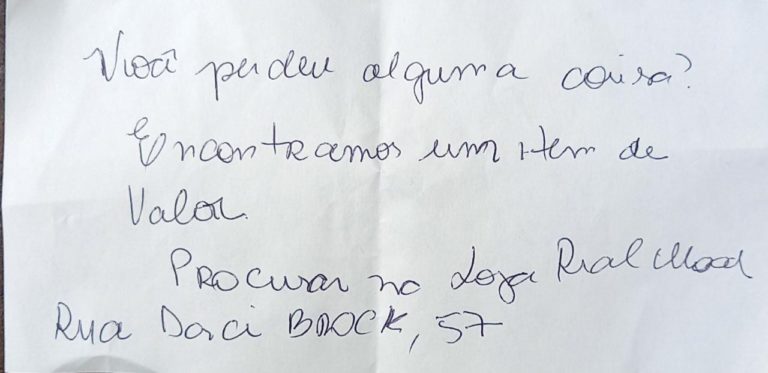 Você perdeu alguma coisa?
Encontramos um item de
Valor.
Procurar na Loja Real
Rua Darci BROCK, 57